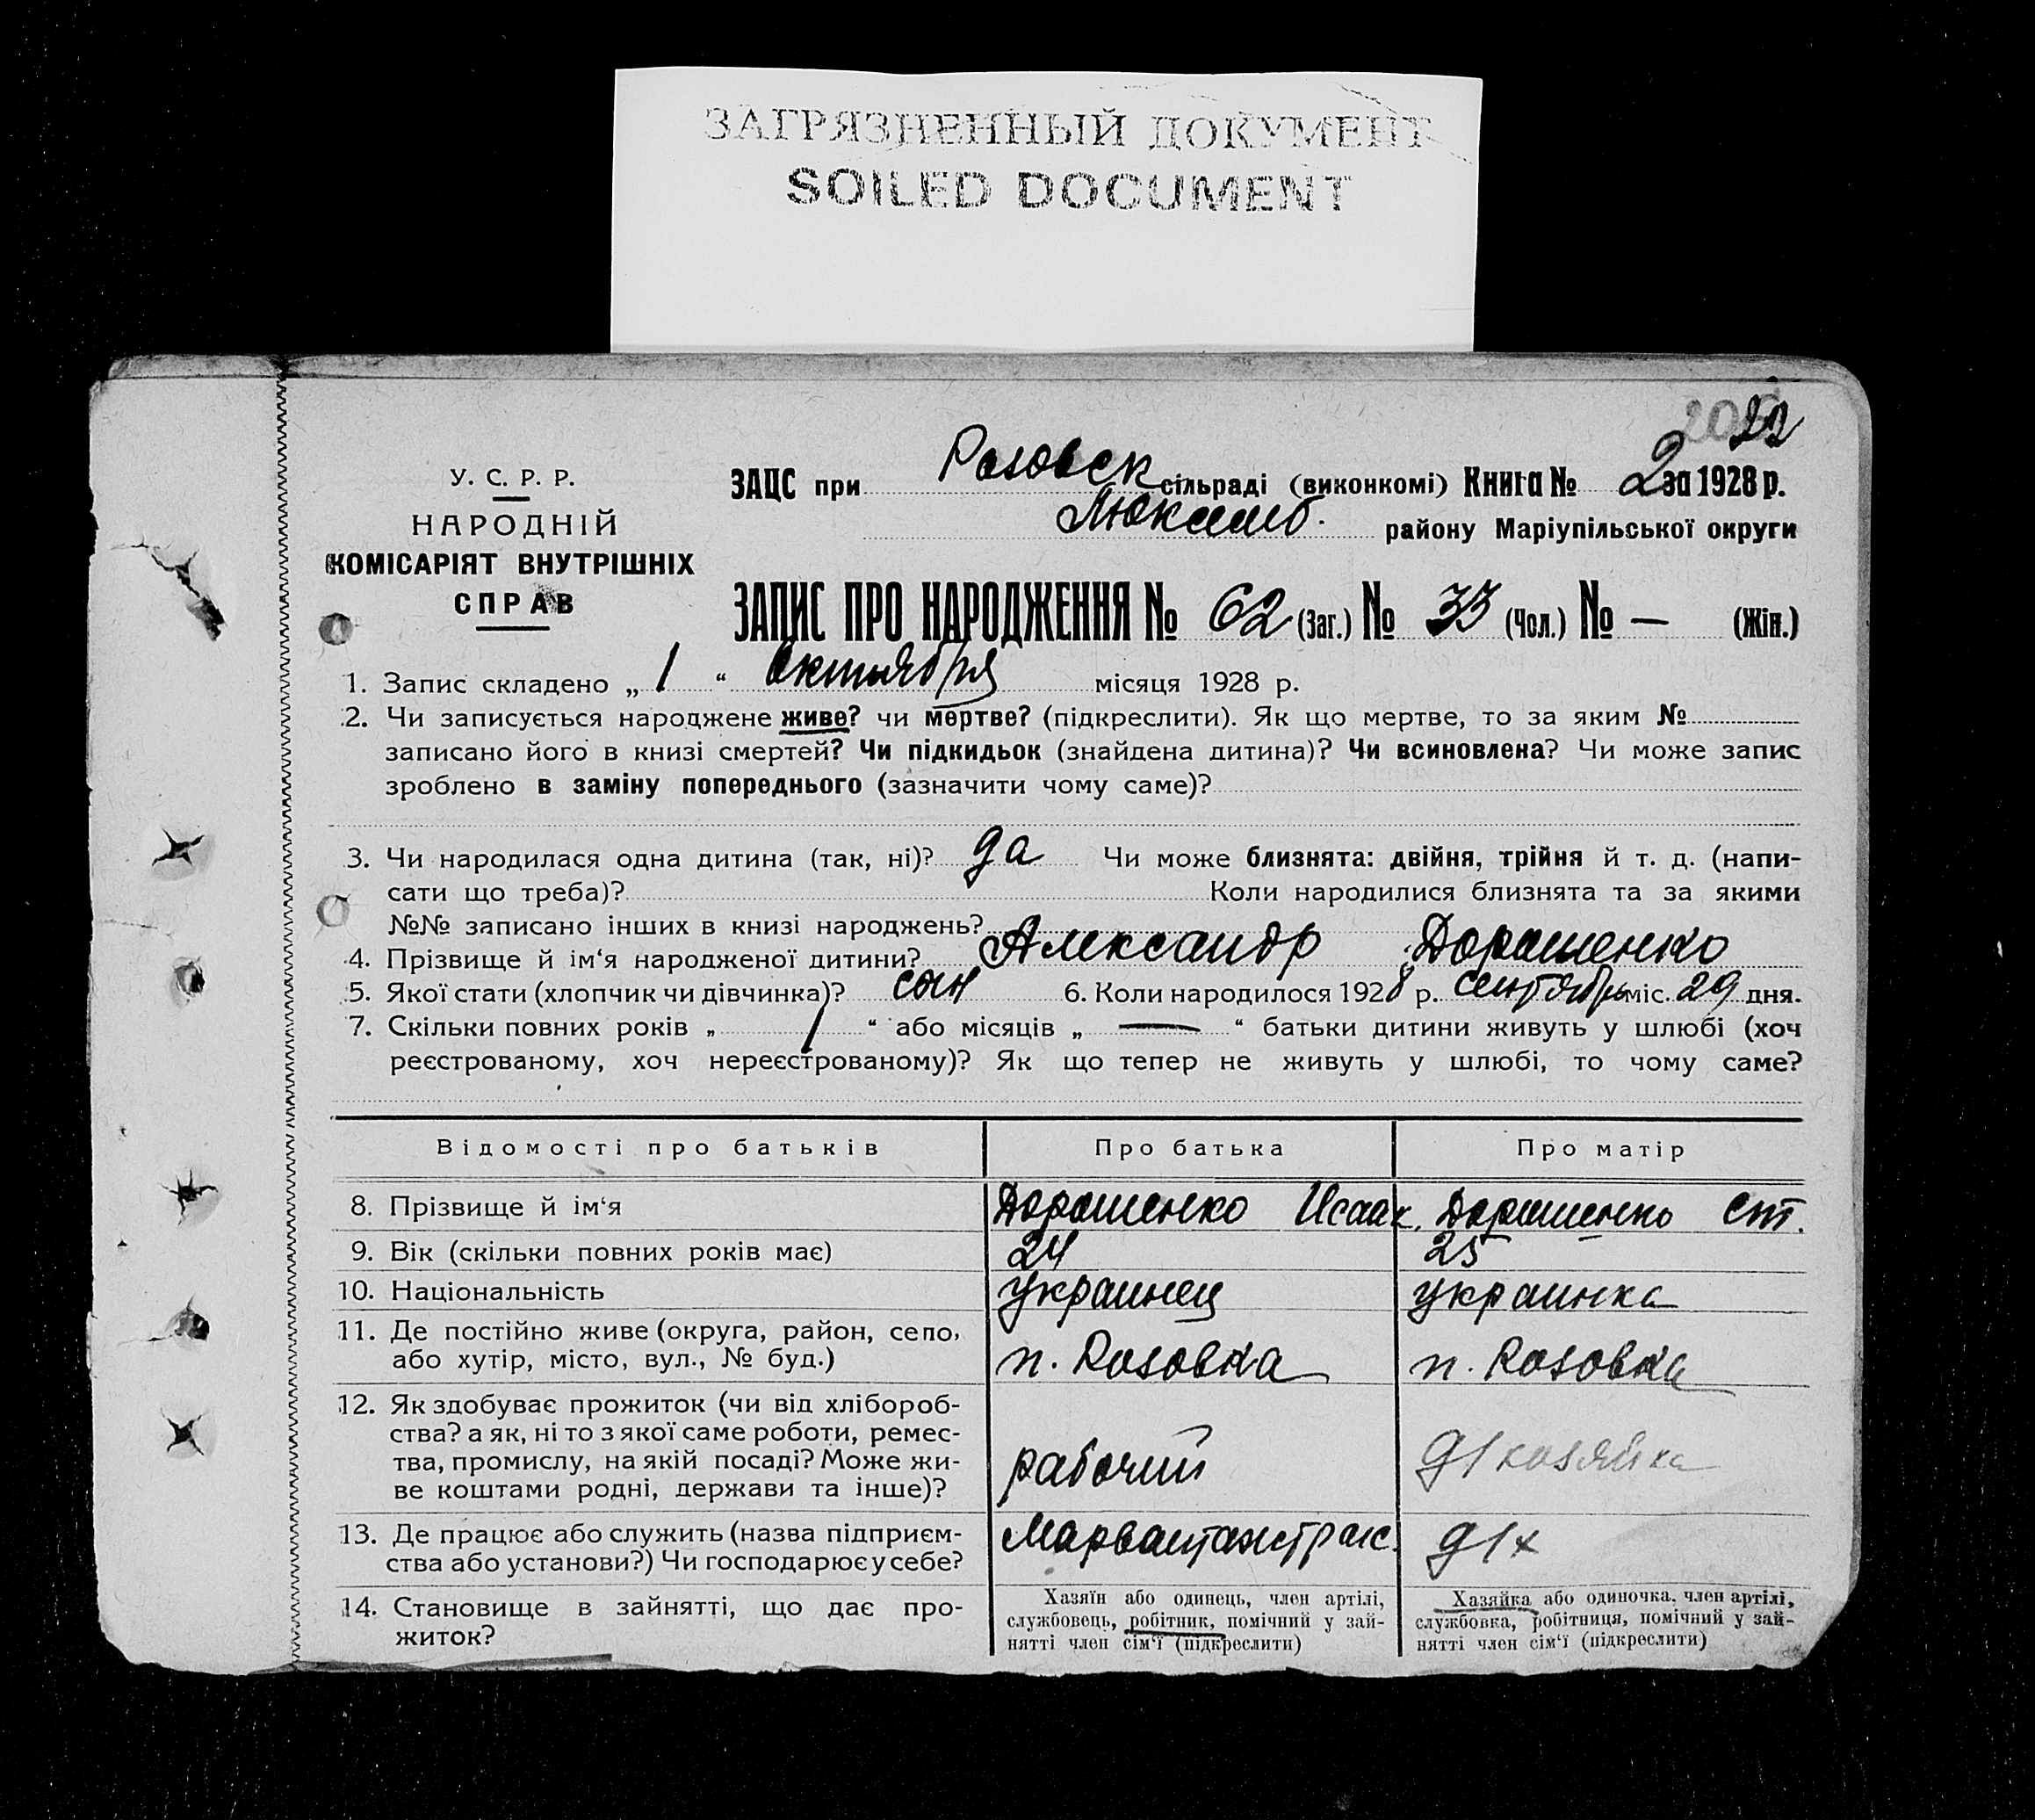 ЗАГРЯЗНЕННЫЙ ДОКУМЕНТ
SOILED DOCUMENT
22
У. С. Р. Р.
НАРОДНІЙ
КОМІСАРІЯТ ВНУТРІШНІХ
СПРАВ
ЗАЦС при Розовск сільраді (виконкомі) Книга № 2 за 1928 р.
Люксемб. району Маріупільської округи
ЗАПИС ПРО НАРОДЖЕННЯ № 62 (Заг.) № 33 (Чол.) № — (Жін.)
1. Запис складено „ 1 “ Октября місяця 1928 р.
2. Чи записується народжене живе? чи мертве? (підкреслити). Як що мертве, то за яким №
записано його в книзі смертей? Чи підкидьок (знайдена дитина)? Чи всиновлена? Чи може запис
зроблено в заміну попереднього (зазначити чому саме)?
3. Чи народилася одна дитина (так, ні)? да Чи може близнята: двійня, трійня й т. д. (напи-
сати що треба)? Коли народилися близнята та за якими
№№ записано інших в книзі народжень?
4. Прізвище й ім‘я народженої дитини? Александр Дорошенко
5. Якої стати (хлопчик чи дівчинка)? сын 6. Коли народилося 1928 р. сентябрь міс. 29 дня.
7. Скільки повних років „ 1 “ або місяців „ — “ батьки дитини живуть у шлюбі (хоч
реєстрованому, хоч нереєстрованому)? Як що тепер не живуть у шлюбі, то чому саме?
Відомості про батьків Про батька Про матір
8. Прізвище й ім‘я Дорошенко Исаак. Дорошенко
9. Вік (скільки повних років має) 24 25
10. Національність украинец украинка
11. Де постійно живе (округа, район, село,
або хутір, місто, вул., № буд.) п. Розовка п. Розовка
12. Як здобуває прожиток (чи від хліборобс-
ства? а як, ні то з якої саме роботи, ремес-
тва, промислу, на якій посаді? Може жи-
ве коштами родні, держави та інше)? рабочий д/хозяйка
13. Де працює або служить (назва підприєм-
ства або установи?) Чи господарює у себе? д/х
14. Становище в зайнятті, що дає про-
житок?
Хазяїн або одинець, член артілі,
службовець, робітник, помічний у зай-
нятті член сім‘ї (підкреслити)
Хазяйка або одиночка, член артілі,
службовка, робітниця, помічний у зай-
нятті член сім‘ї (підкреслити)